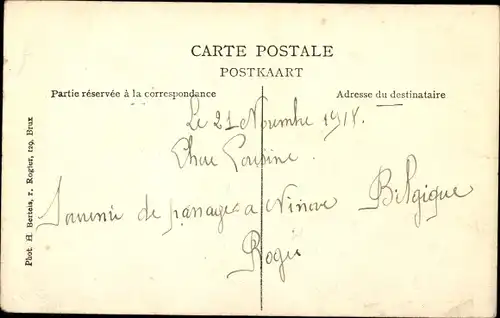 CARTE POSTALE
POSTKAART
Partie réservée à la correspondance
Adresse du destinataire
Le 21 Novembre 1918.
Chere Cousine.
Souvenir de passage a Ninove Belgique
Rogé
Phot. H. Bertels, r. Rogier, 129, Brux